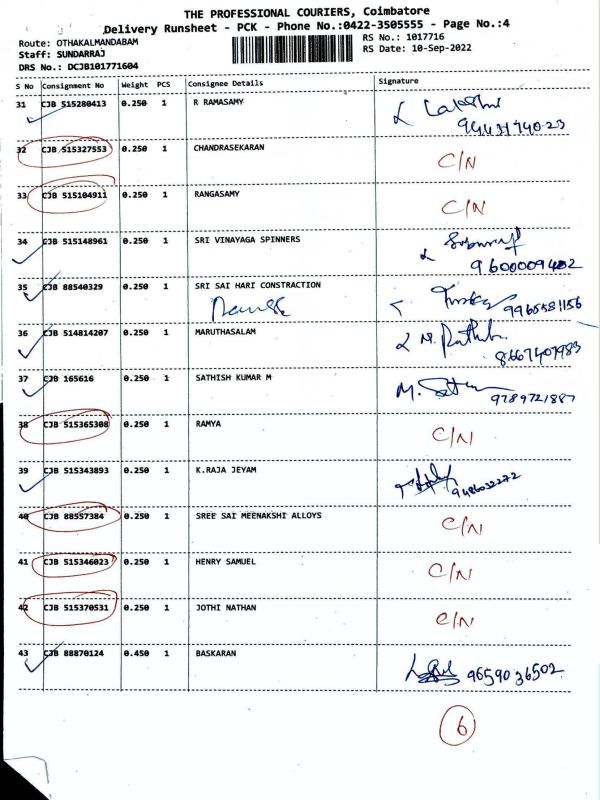 THE PROFESSIONAL COURIERS, Coimbatore
Delivery Runsheet - PCK - Phone No.:0422-3505555 - Page No.:4
Route: OTHAKALMANDABAM
RS No.: 1017716
Staff: SUNDARRAJ
RS Date: 10-Sep-2022
DRS No.: DCJB101771604
S No Consignment No Weight PCS Consignee Details Signature
31 CJB 515280413 0.250 1 R RAMASAMY Lakshmi
9443174023
32 CJB 515327553 0.250 1 CHANDRASEKARAN C/N
33 CJB 515104911 0.250 1 RANGASAMY C/N
34 CJB 515148961 0.250 1 SRI VINAYAGA SPINNERS
9600009402
35 CJB 88540329 0.250 1 SRI SAI HARI CONSTRACTION
9965581156
36 CJB 514814207 0.250 1 MARUTHASALAM
8667407983
37 CJB 165616 0.250 1 SATHISH KUMAR M
9789721887
38 CJB 515365308 0.250 1 RAMYA C/N
39 CJB 515343893 0.250 1 K.RAJA JEYAM
9486032272
40 CJB 88557384 0.250 1 SREE SAI MEENAKSHI ALLOYS C/N
41 CJB 515346023 0.250 1 HENRY SAMUEL C/N
42 CJB 515370531 0.250 1 JOTHI NATHAN C/N
43 CJB 88870124 0.450 1 BASKARAN 9659036502
6